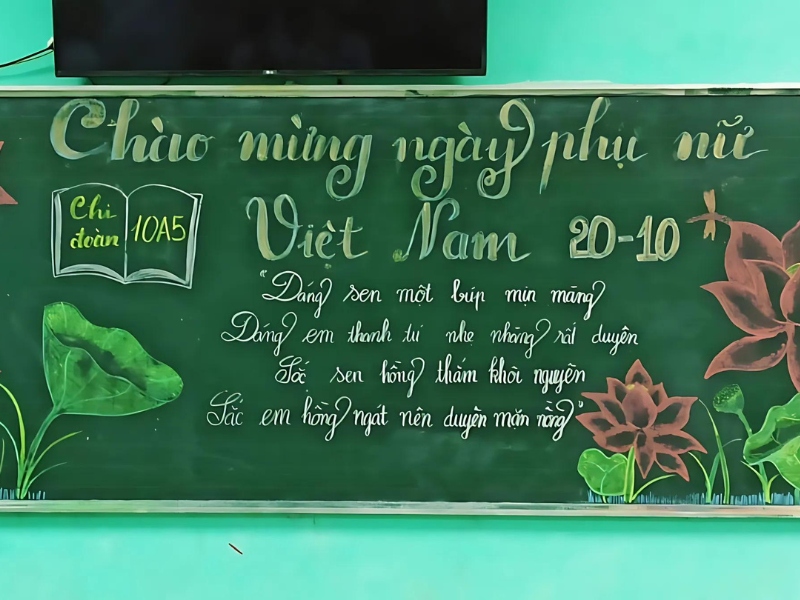 Chào mừng ngày phụ nữ
Việt Nam 20-10
Chi
đoàn 10A5
"Dáng sen một búp mịn màng
Dáng em thanh tú nhẹ nhàng rất duyên
Sắc sen hồng thắm khôi nguyên
Sắc em hồng ngát nên duyên mặn nồng"